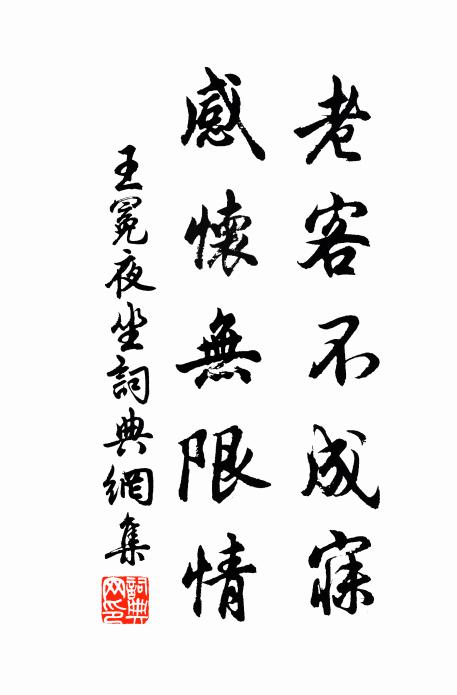 老客不成寐
感懷無限情
王冕夜坐詞典網集
詞典网印